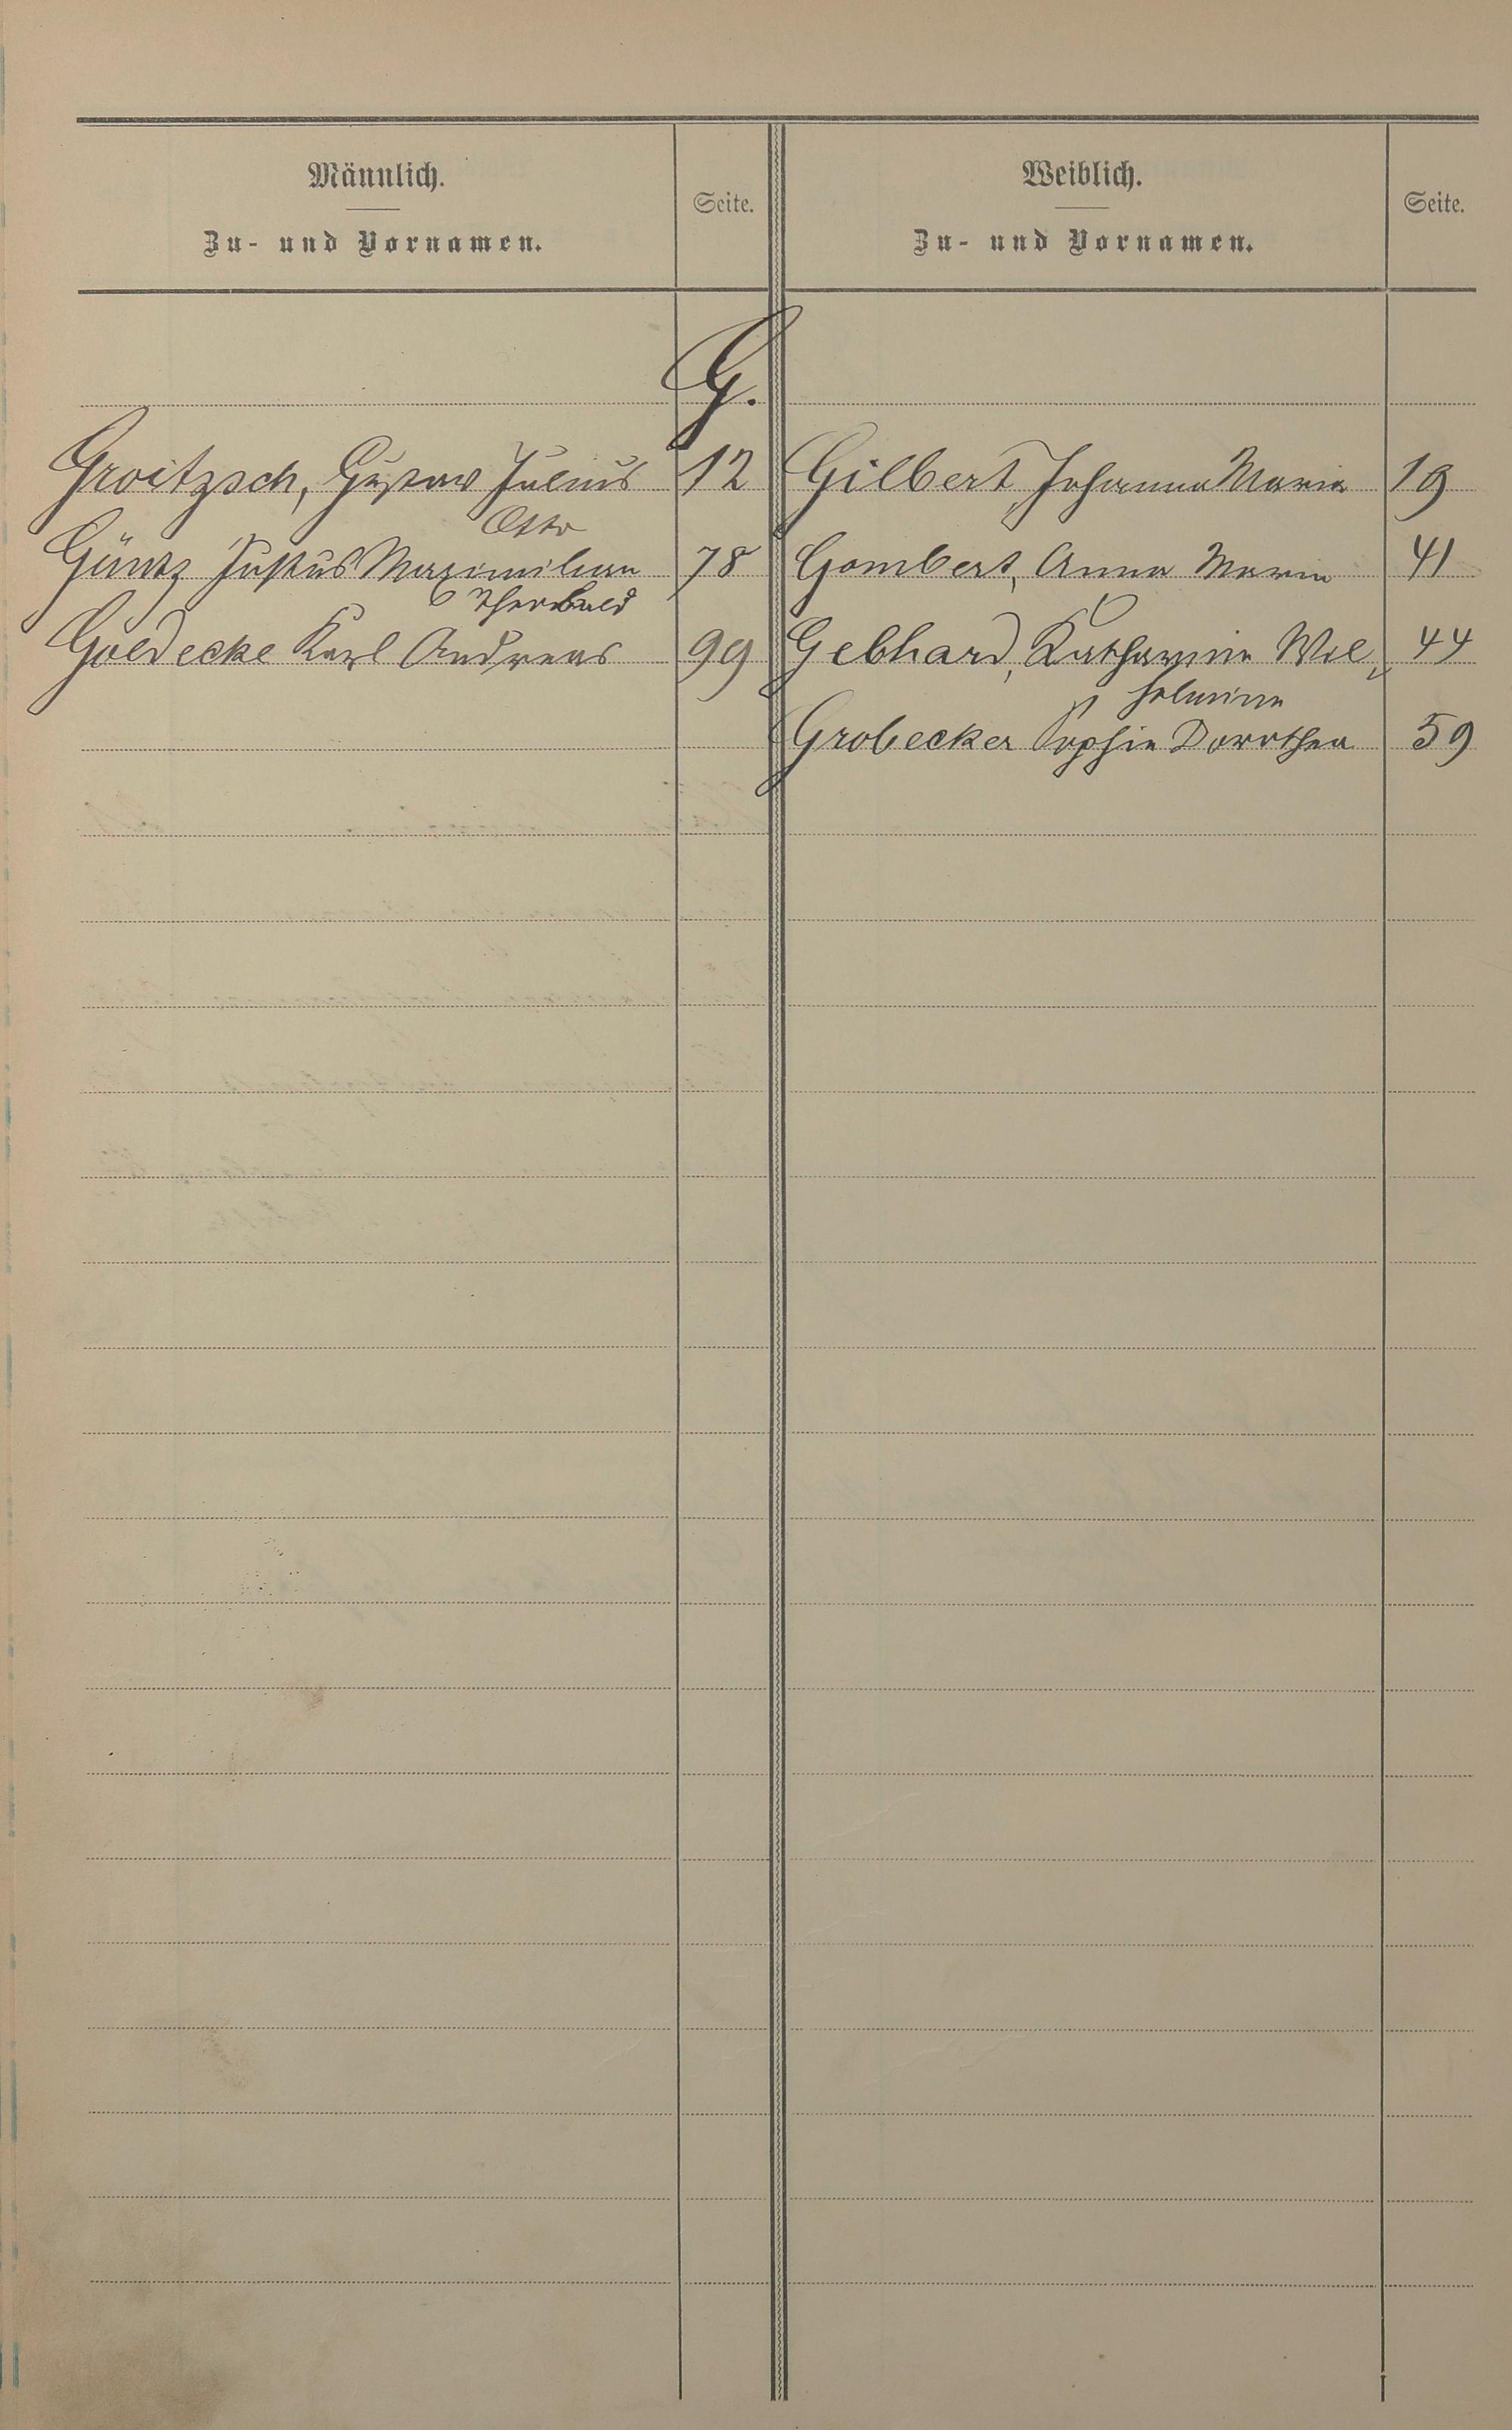 Männlich.
Zu- und Vornamen.
Seite.
Weiblich.
Zu- und Vornamen.
Seite.
G.
Groitzsch, Gustav Julius 12
Otto
Güntz Justus Maximilian 78
Goldecke Karl Andreas 99
Gilbert, Johanna Maria 19
Gombert, Anna Maria 41
Gebhard, Katharina Wil„ 44
helmine
Grobecker Sophie Dorothea 59